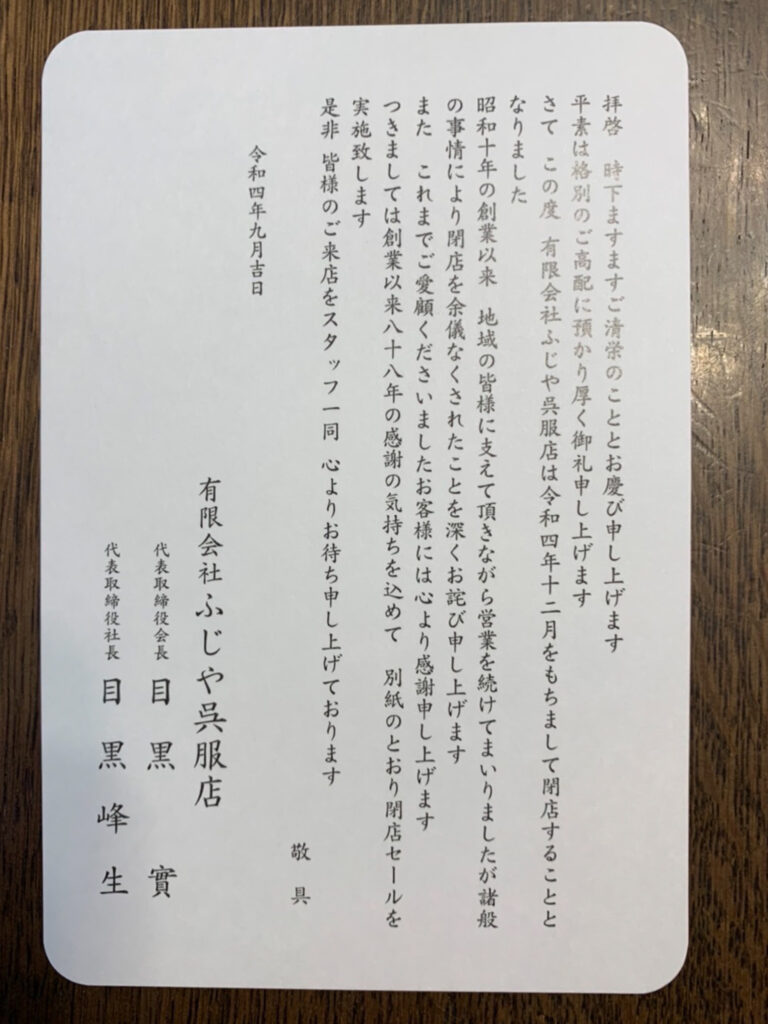 拝啓　時下ますますご清栄のこととお慶び申し上げます
平素は格別のご高配に預かり厚く御礼申し上げます
さて　この度　有限会社ふじや呉服店は令和四年十二月をもちまして閉店することと
なりました
昭和十年の創業以来　地域の皆様に支えて頂きながら営業を続けてまいりましたが諸般
の事情により閉店を余儀なくされたことを深くお詫び申し上げます
また　これまでご愛顧くださいましたお客様には心より感謝申し上げます
つきましては創業以来八十八年の感謝の気持ちを込めて　別紙のとおり閉店セールを
実施致します
是非 皆様のご来店をスタッフ一同 心よりお待ち申し上げております
敬具
令和四年九月吉日
有限会社ふじや呉服店
代表取締役会長 目黒 實
代表取締役社長 目黒峰生